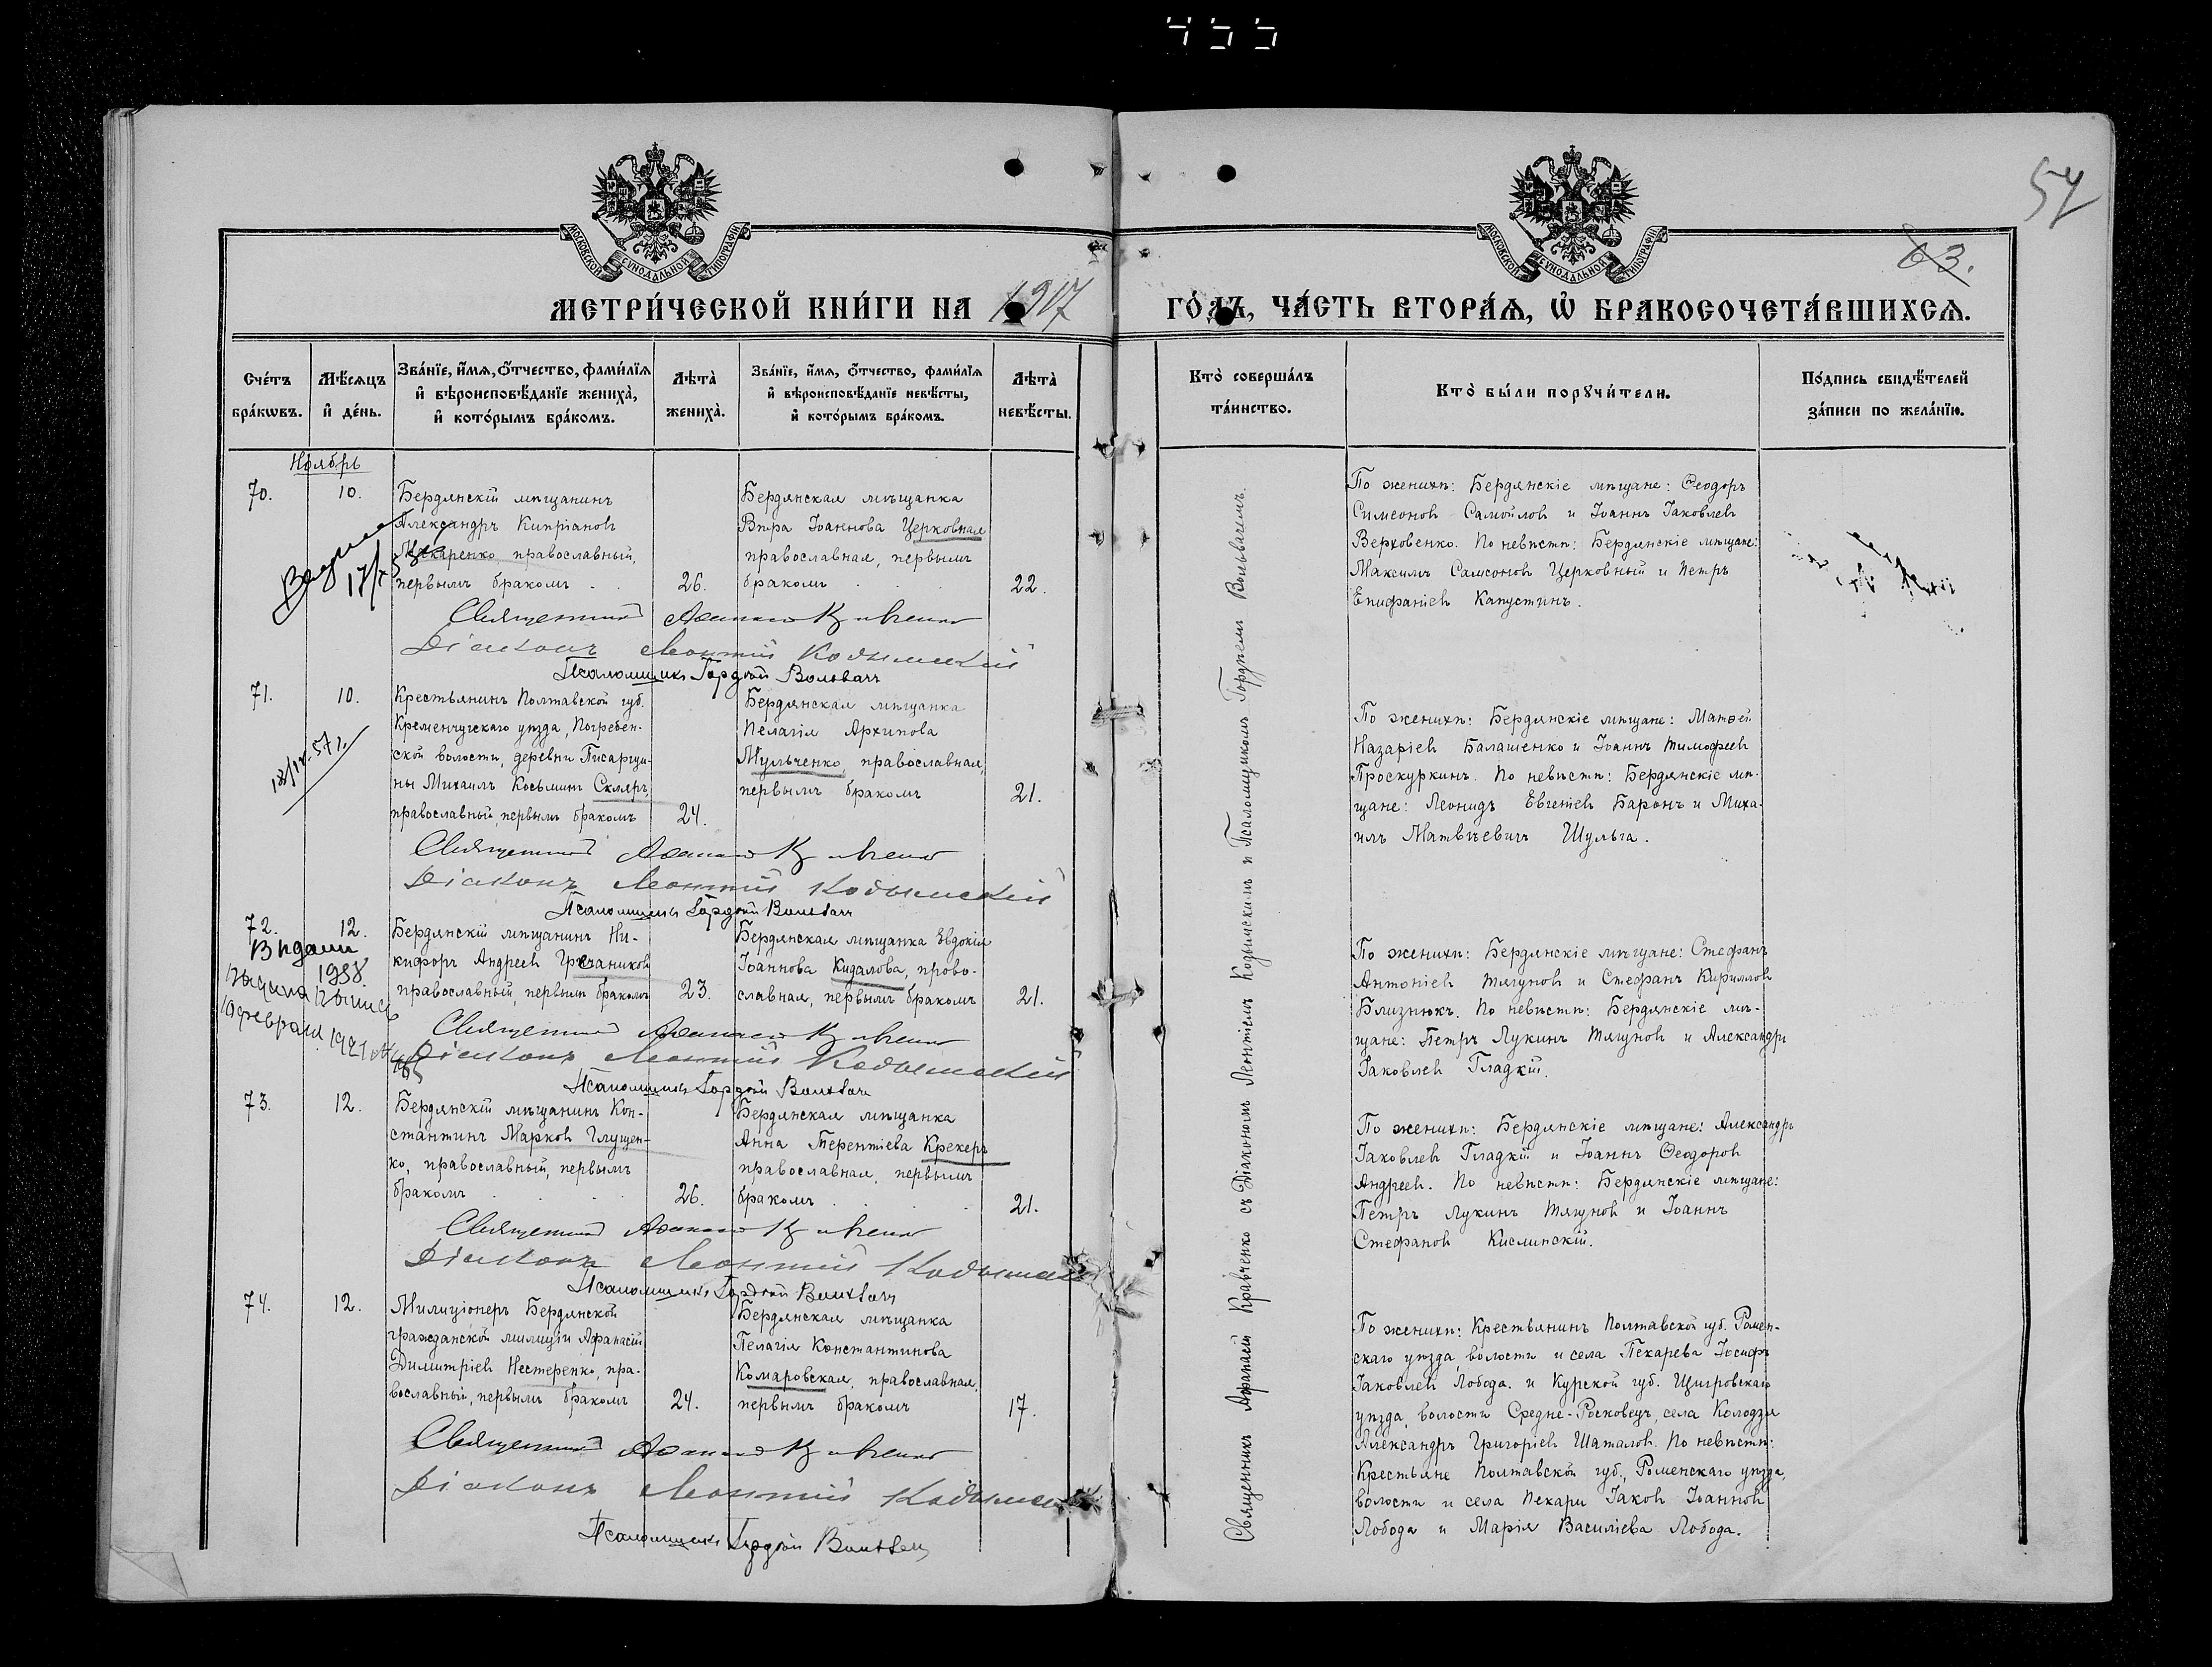 455
57
63.
МОСКОВСКОЙ СѴНОДАЛЬНОЙ ТИПОГРАФІИ
МОСКОВСКОЙ СѴНОДАЛЬНОЙ ТИПОГРАФІИ
МЕТРИ́ЧЕСКОЙ КНИ́ГИ НА 1917 ГО́ДЪ, ЧА́СТЬ ВТОРА́Ѧ, Ѽ БРАКОСОЧЕТА́ВШИХСѦ.
Сче́тъ бра́кѡвъ.
Мѣ́сяцъ и҆ де́нь.
Зва́нїе, и҆́мѧ, ѻ҆́тчество, фами́лїѧ и҆ вѣроисповѣ́данїе жениха̀, и҆ кото́рымъ бра́комъ.
Лѣта̀ жениха̀.
Зва́нїе, и҆́мѧ, ѻ҆́тчество, фами́лїѧ и҆ вѣроисповѣ́данїе невѣ́сты, и҆ кото́рымъ бра́комъ.
Лѣта̀ невѣ́сты.
Кто̀ соверша́лъ та́инство.
Кто̀ бы́ли порꙋчи́тели.
По́дпись свидѣ́телей за́писи по жела́нїю.
Ноябрь
70.
10.
Бердянскій мѣщанинъ
Александръ Кипріановъ
Макаренко, православный,
первымъ бракомъ
26.
Бердянская мѣщанка
Вѣра Іоаннова Церковная
православная, первымъ
бракомъ
22.
По женихѣ: Бердянскіе мѣщане: Ѳеодоръ
Симеоновъ Самойловъ и Іоаннъ Іаковлевъ
Верховенко. По невѣстѣ: Бердянскіе мѣщане:
Максимъ Самсоновъ Церковный и Петръ
Епифаніевъ Капустинъ.
Священникъ
Діаконъ Леонтій Кодымскій
Псаломщикъ Гордѣй Вольвачъ
71.
10.
Крестьянинъ Полтавской губ.
Кременчугскаго уѣзда, Погребен-
ской волости, деревни Писарщи-
ны Михаилъ Косьминъ Скляръ,
православный, первымъ бракомъ
24.
Бердянская мѣщанка
Пелагія Архипова
Мульченко, православная,
первымъ бракомъ
21.
По женихѣ: Бердянскіе мѣщане: Матѳей
Назаріевъ Балашенко и Іоаннъ Тимофеевъ
Проскуркинъ. По невѣстѣ: Бердянскіе мѣ-
щане: Леонидъ Евгеніевъ Баронъ и Миха-
илъ Матвѣевичъ Шульга.
Священникъ
Діаконъ Леонтій Кодымскій
Псаломщикъ Гордѣй Вольвачъ
72.
12.
Бердянскій мѣщанинъ Ни-
кифоръ Андреевъ Гречаниковъ
православный, первымъ бракомъ
23.
Бердянская мѣщанка Евдокія
Іоаннова Кидалова, право-
славная, первымъ бракомъ
21.
1938.
февраля 1921
По женихѣ: Бердянскіе мѣщане: Стефанъ
Антоніевъ Тягуновъ и Стефанъ Кирилловъ
Близнюкъ. По невѣстѣ: Бердянскіе мѣ-
щане: Петръ Лукинъ Тягуновъ и Александръ
Іаковлевъ Гладкій.
Священникъ
Діаконъ Леонтій Кодымскій
Псаломщикъ Гордѣй Вольвачъ
73.
12.
Бердянскій мѣщанинъ Кон-
стантинъ Марковъ Глущен-
ко, православный, первымъ
бракомъ
26.
Бердянская мѣщанка
Анна Терентіева Крекеръ
православная, первымъ
бракомъ
21.
По женихѣ: Бердянскіе мѣщане: Александръ
Іаковлевъ Гладкій и Іоаннъ Ѳеодоровъ
Андреевъ. По невѣстѣ: Бердянскіе мѣщане:
Петръ Лукинъ Тягуновъ и Іоаннъ
Стефановъ Кислинскій.
Священникъ
Діаконъ Леонтій Кодымскій
Псаломщикъ Гордѣй Вольвачъ
74.
12.
Милиціонеръ Бердянской
гражданской милиціи Афанасій
Димитріевъ Нестеренко, пра-
вославный, первымъ бракомъ
24.
Бердянская мѣщанка
Пелагія Константинова
Комаровская, православная,
первымъ бракомъ
17.
По женихѣ: Крестьянинъ Полтавской губ. Ромен-
скаго уѣзда, волости и села Пекарева Іосифъ
Іаковлевъ Лобода. и Курской губ. Щигровскаго
уѣзда, волости Средне-Росховецъ, села Колодзя
Александръ Григоріевъ Шаталовъ. По невѣстѣ:
Крестьяне Полтавской губ., Роменскаго уѣзда,
волости и села Пекари Іаковъ Іоанновъ
Лобода и Марія Василіева Лобода.
Священникъ
Діаконъ Леонтій
Псаломщикъ Гордѣй Вольвачъ
Священникъ Афанасій Кравченко съ Діакономъ Леонтіемъ Кодымскимъ и Псаломщикомъ Гордѣемъ Вольвачемъ.